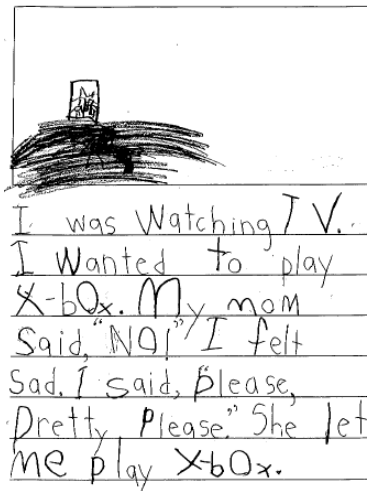 I was Watching TV.
I Wanted to play
X-bOx. My mom
Said, "NO!" I felt
Sad. I said, Please,
Pretty Please." She let
me play X-bOx.